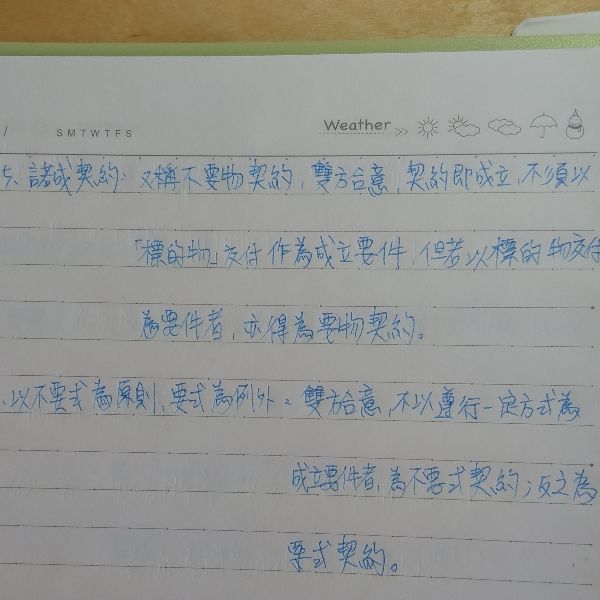 / S M T W T F S Weather
5、諾成契約：又稱不要物契約，雙方合意，契約即成立，不須以
「標的物」交付作為成立要件，但若以標的物交付
為要件者，亦得為要物契約。
、以不要式為原則，要式為例外：雙方合意，不以遵行一定方式為
成立要件者，為不要式契約；反之為
要式契約。